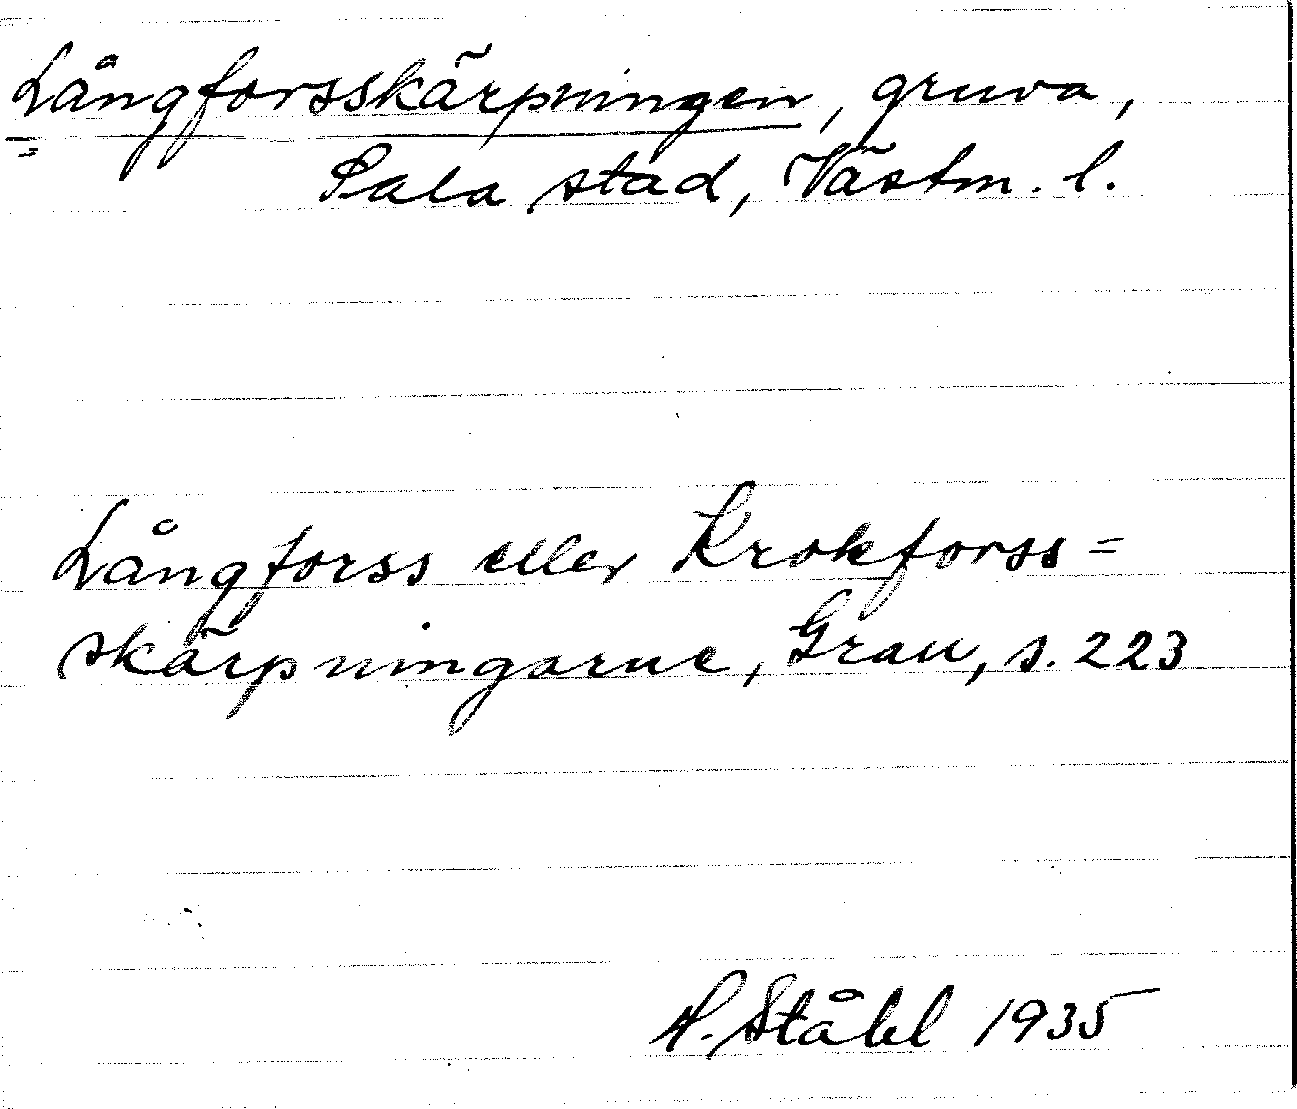 Långforsskärpningen, gruva,
Sala stad, Västm. l.
Långforss eller Krokforss=
skärpningarne, Grau, s. 223
H. Ståhl 1935